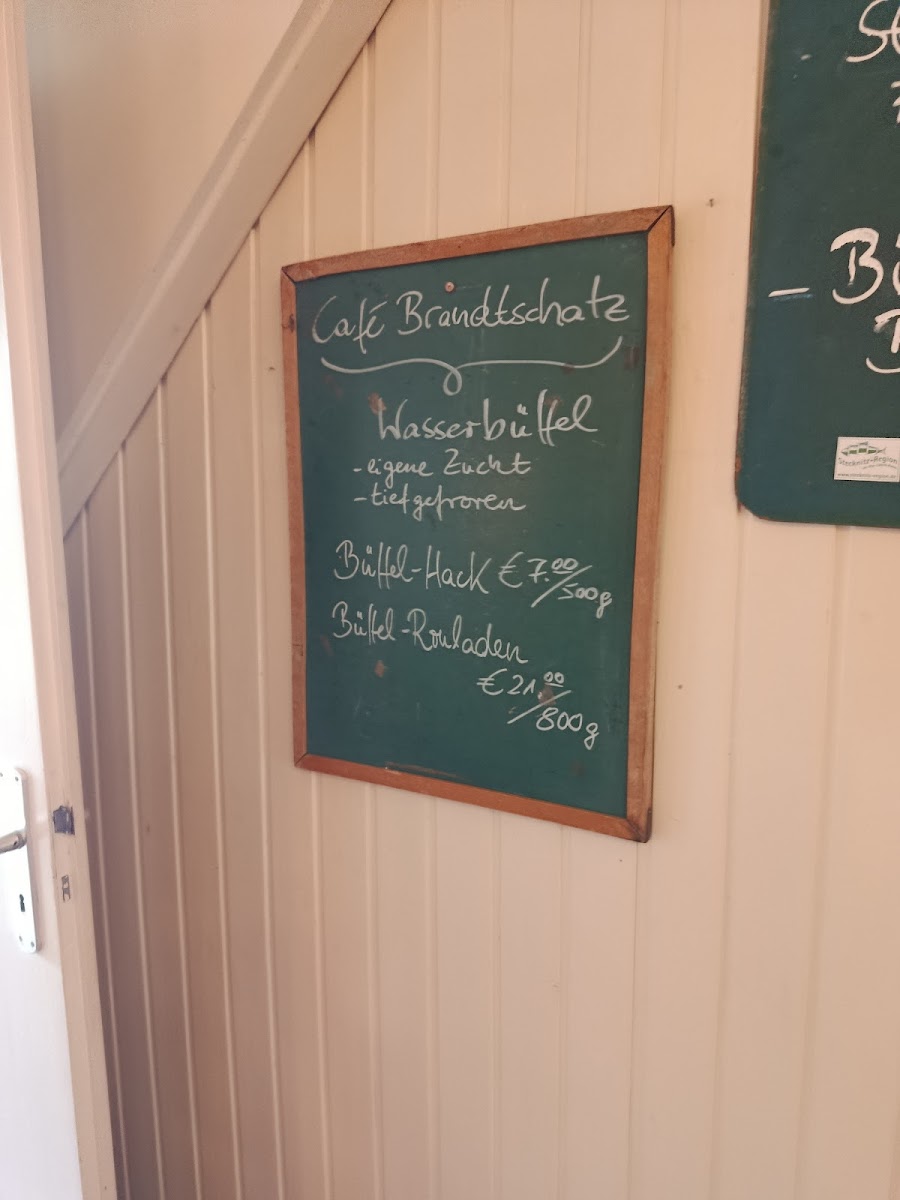 Café Brandtschatz
Wasserbüffel
- eigene Zucht
- tiefgefroren
Büffel-Hack € 7.00/500g
Büffel-Rouladen
€ 21.00/800g
Stecknitz-Region